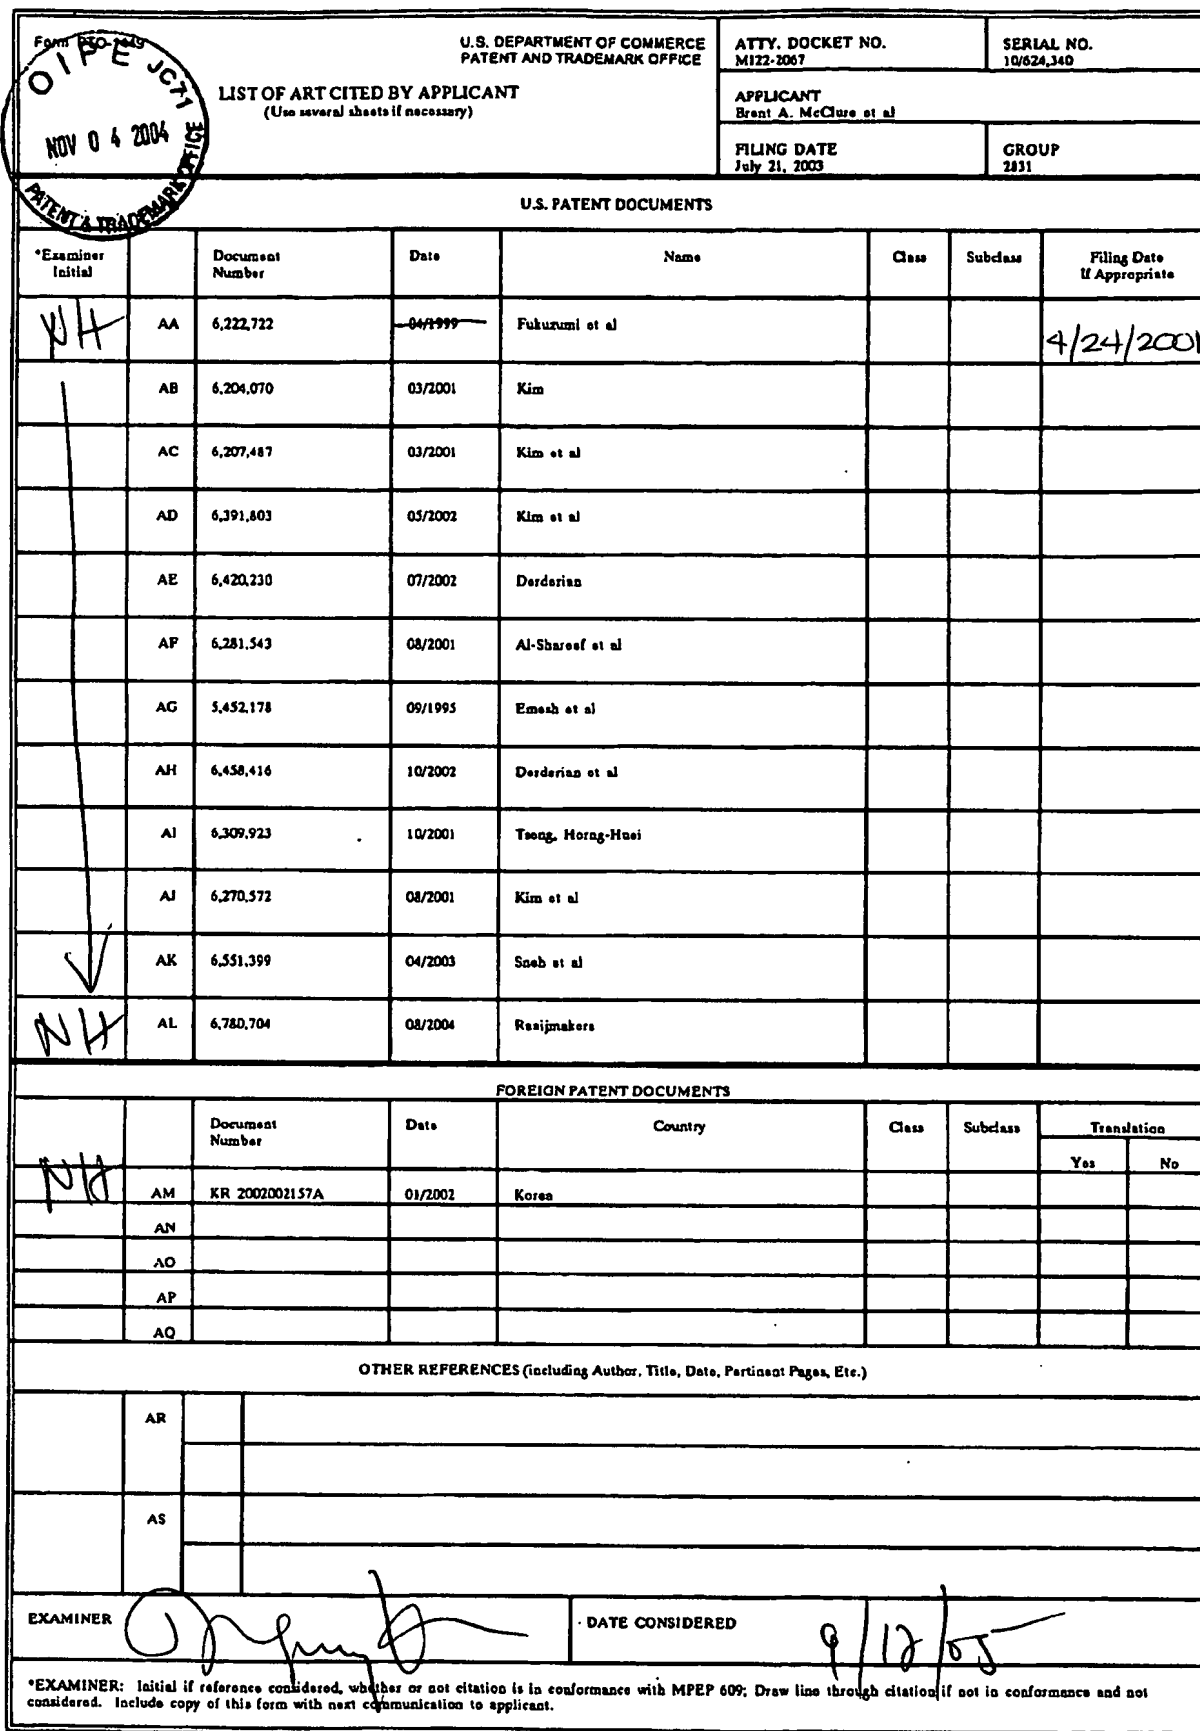 Form PTO-1449
OIPE JC71
NOV 0 4 2004
PATENT & TRADEMARK OFFICE
U.S. DEPARTMENT OF COMMERCE
PATENT AND TRADEMARK OFFICE
LIST OF ART CITED BY APPLICANT
(Use several sheets if necessary)
ATTY. DOCKET NO.
MI22-2067
SERIAL NO.
10/624,340
APPLICANT
Brent A. McClure et al
FILING DATE
July 21, 2003
GROUP
2831
U.S. PATENT DOCUMENTS
*Examiner Initial Document Number Date Name Class Subclass Filing Date If Appropriate
NH AA 6,222,722 04/1999 Fukuzumi et al 4/24/2001
AB 6,204,070 03/2001 Kim
AC 6,207,487 03/2001 Kim et al
AD 6,391,803 05/2002 Kim et al
AE 6,420,230 07/2002 Derderian
AF 6,281,543 08/2001 Al-Shareef et al
AG 5,452,178 09/1995 Emesh et al
AH 6,458,416 10/2002 Derderian et al
AI 6,309,923 10/2001 Tseng, Horng-Huei
AJ 6,270,572 08/2001 Kim et al
AK 6,551,399 04/2003 Sneh et al
NH AL 6,780,704 08/2004 Raaijmakers
FOREIGN PATENT DOCUMENTS
Document Number Date Country Class Subclass Translation
Yes No
NH AM KR 2002002157A 01/2002 Korea
AN
AO
AP
AQ
OTHER REFERENCES (including Author, Title, Date, Pertinent Pages, Etc.)
AR
AS
EXAMINER
DATE CONSIDERED 9/12/05
*EXAMINER: Initial if reference considered, whether or not citation is in conformance with MPEP 609; Draw line through citation if not in conformance and not
considered. Include copy of this form with next communication to applicant.